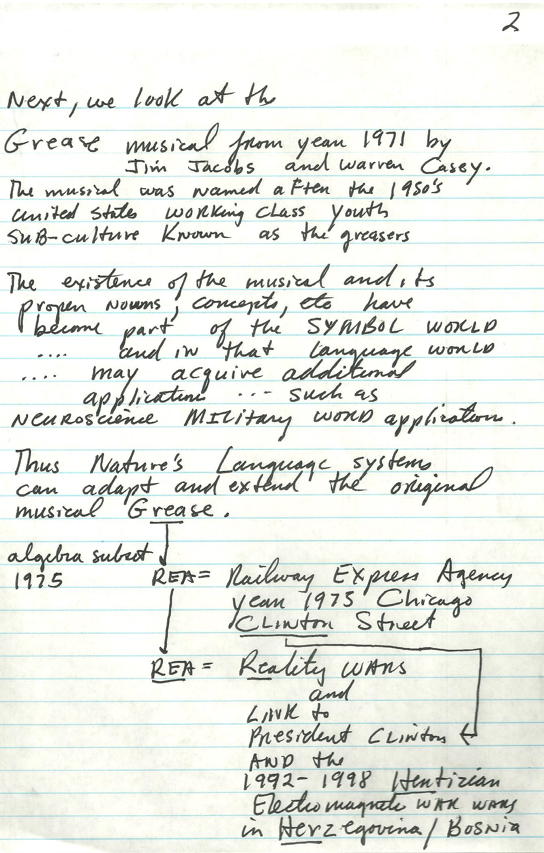 2
Next, we look at th
Grease musical from year 1971 by
Jim Jacobs and Warren Casey.
The musical was named after the 1950's
United States working class youth
sub-culture known as the greasers
The existence of the musical and its
proper nouns, concepts, etc have
become part of the SYMBOL WORLD
.... and in that language world
.... may acquire additional
application ... such as
NEUROSCIENCE MILITARY WORD application.
Thus Nature's Language systems
can adapt and extend the original
musical Grease.
algebra subset
1975 REA = Railway Express Agency
year 1975 Chicago
CLINTON Street
REA = Reality WARS
and
LINK to
President Clinton
AND the
1992-1998 Hentizian
Electromagnetic WAR WARS
in Herzegovina/Bosnia